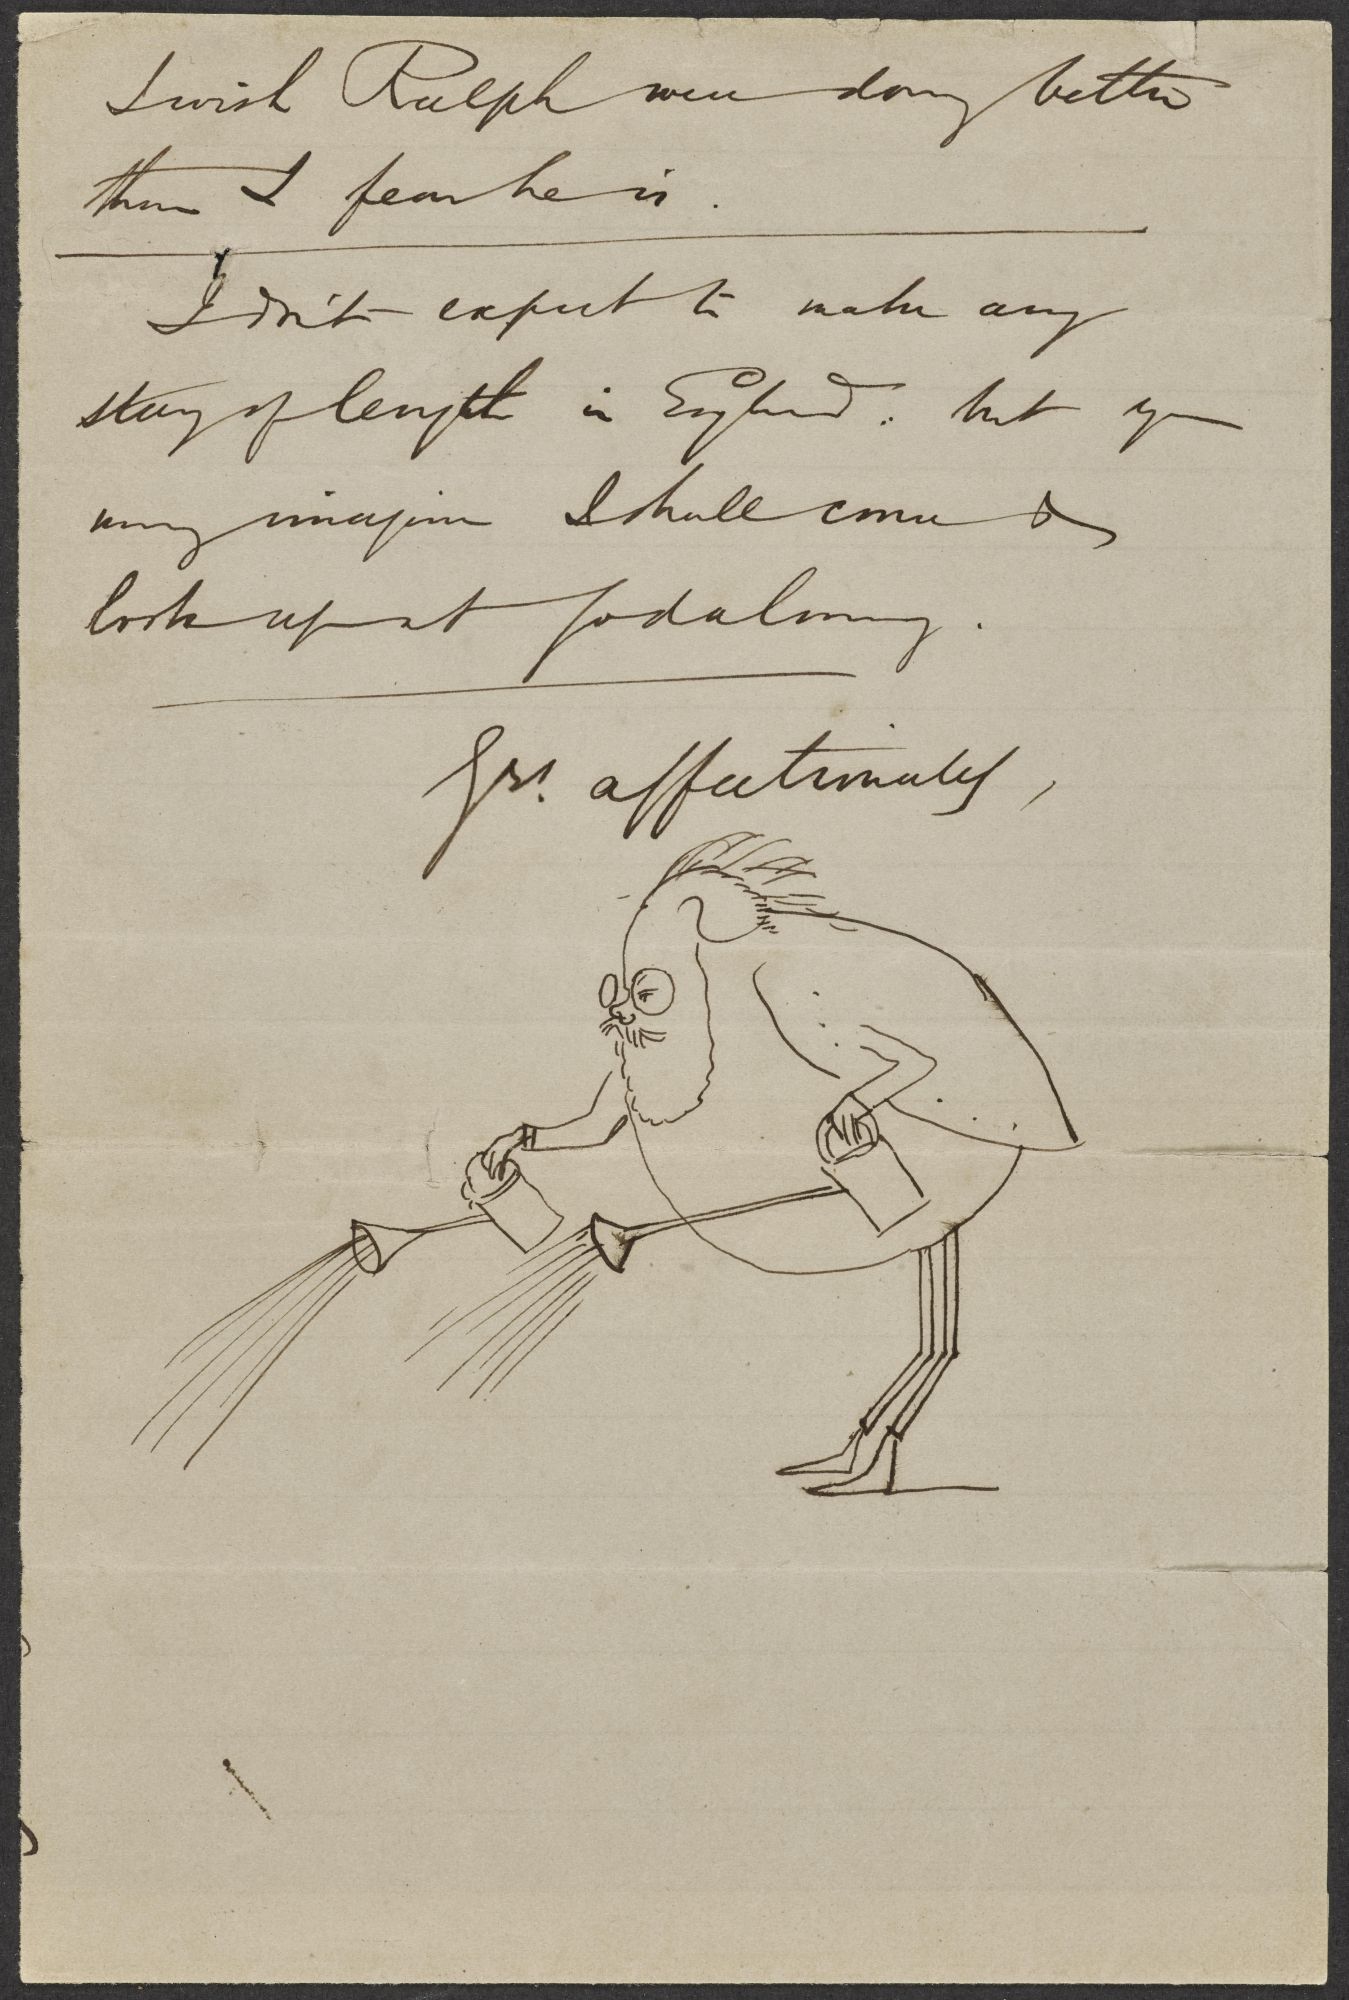 I wish Ralph were doing better
than I fear he is.
I don't expect to make any
stay of length in England: but you
may imagine I shall come &
look up at Godalming.
Yrs. affectionately,